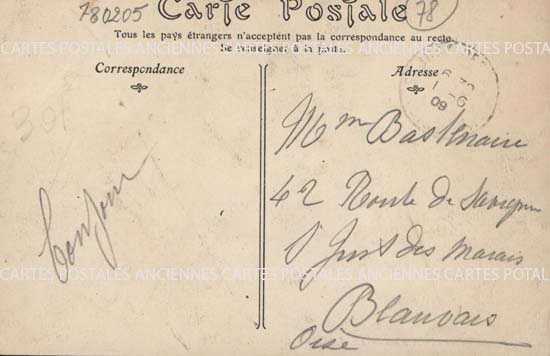 780205
78
Carte Postale
Tous les pays étrangers n'acceptent pas la correspondance au recto.
Se renseigner à la poste.
Correspondance
Adresse
CARTES POSTALES ANCIENNES CARTES POSTALES ANCIENNES CARTES POSTALES
30f
bonjour
Mme Bastenaire
42 Route de Savignies
St Just des Marais
CARTES POSTALES ANCIENNES CARTES POSTALES ANCIENNES CARTES POSTALES
Beauvais
Oise
09